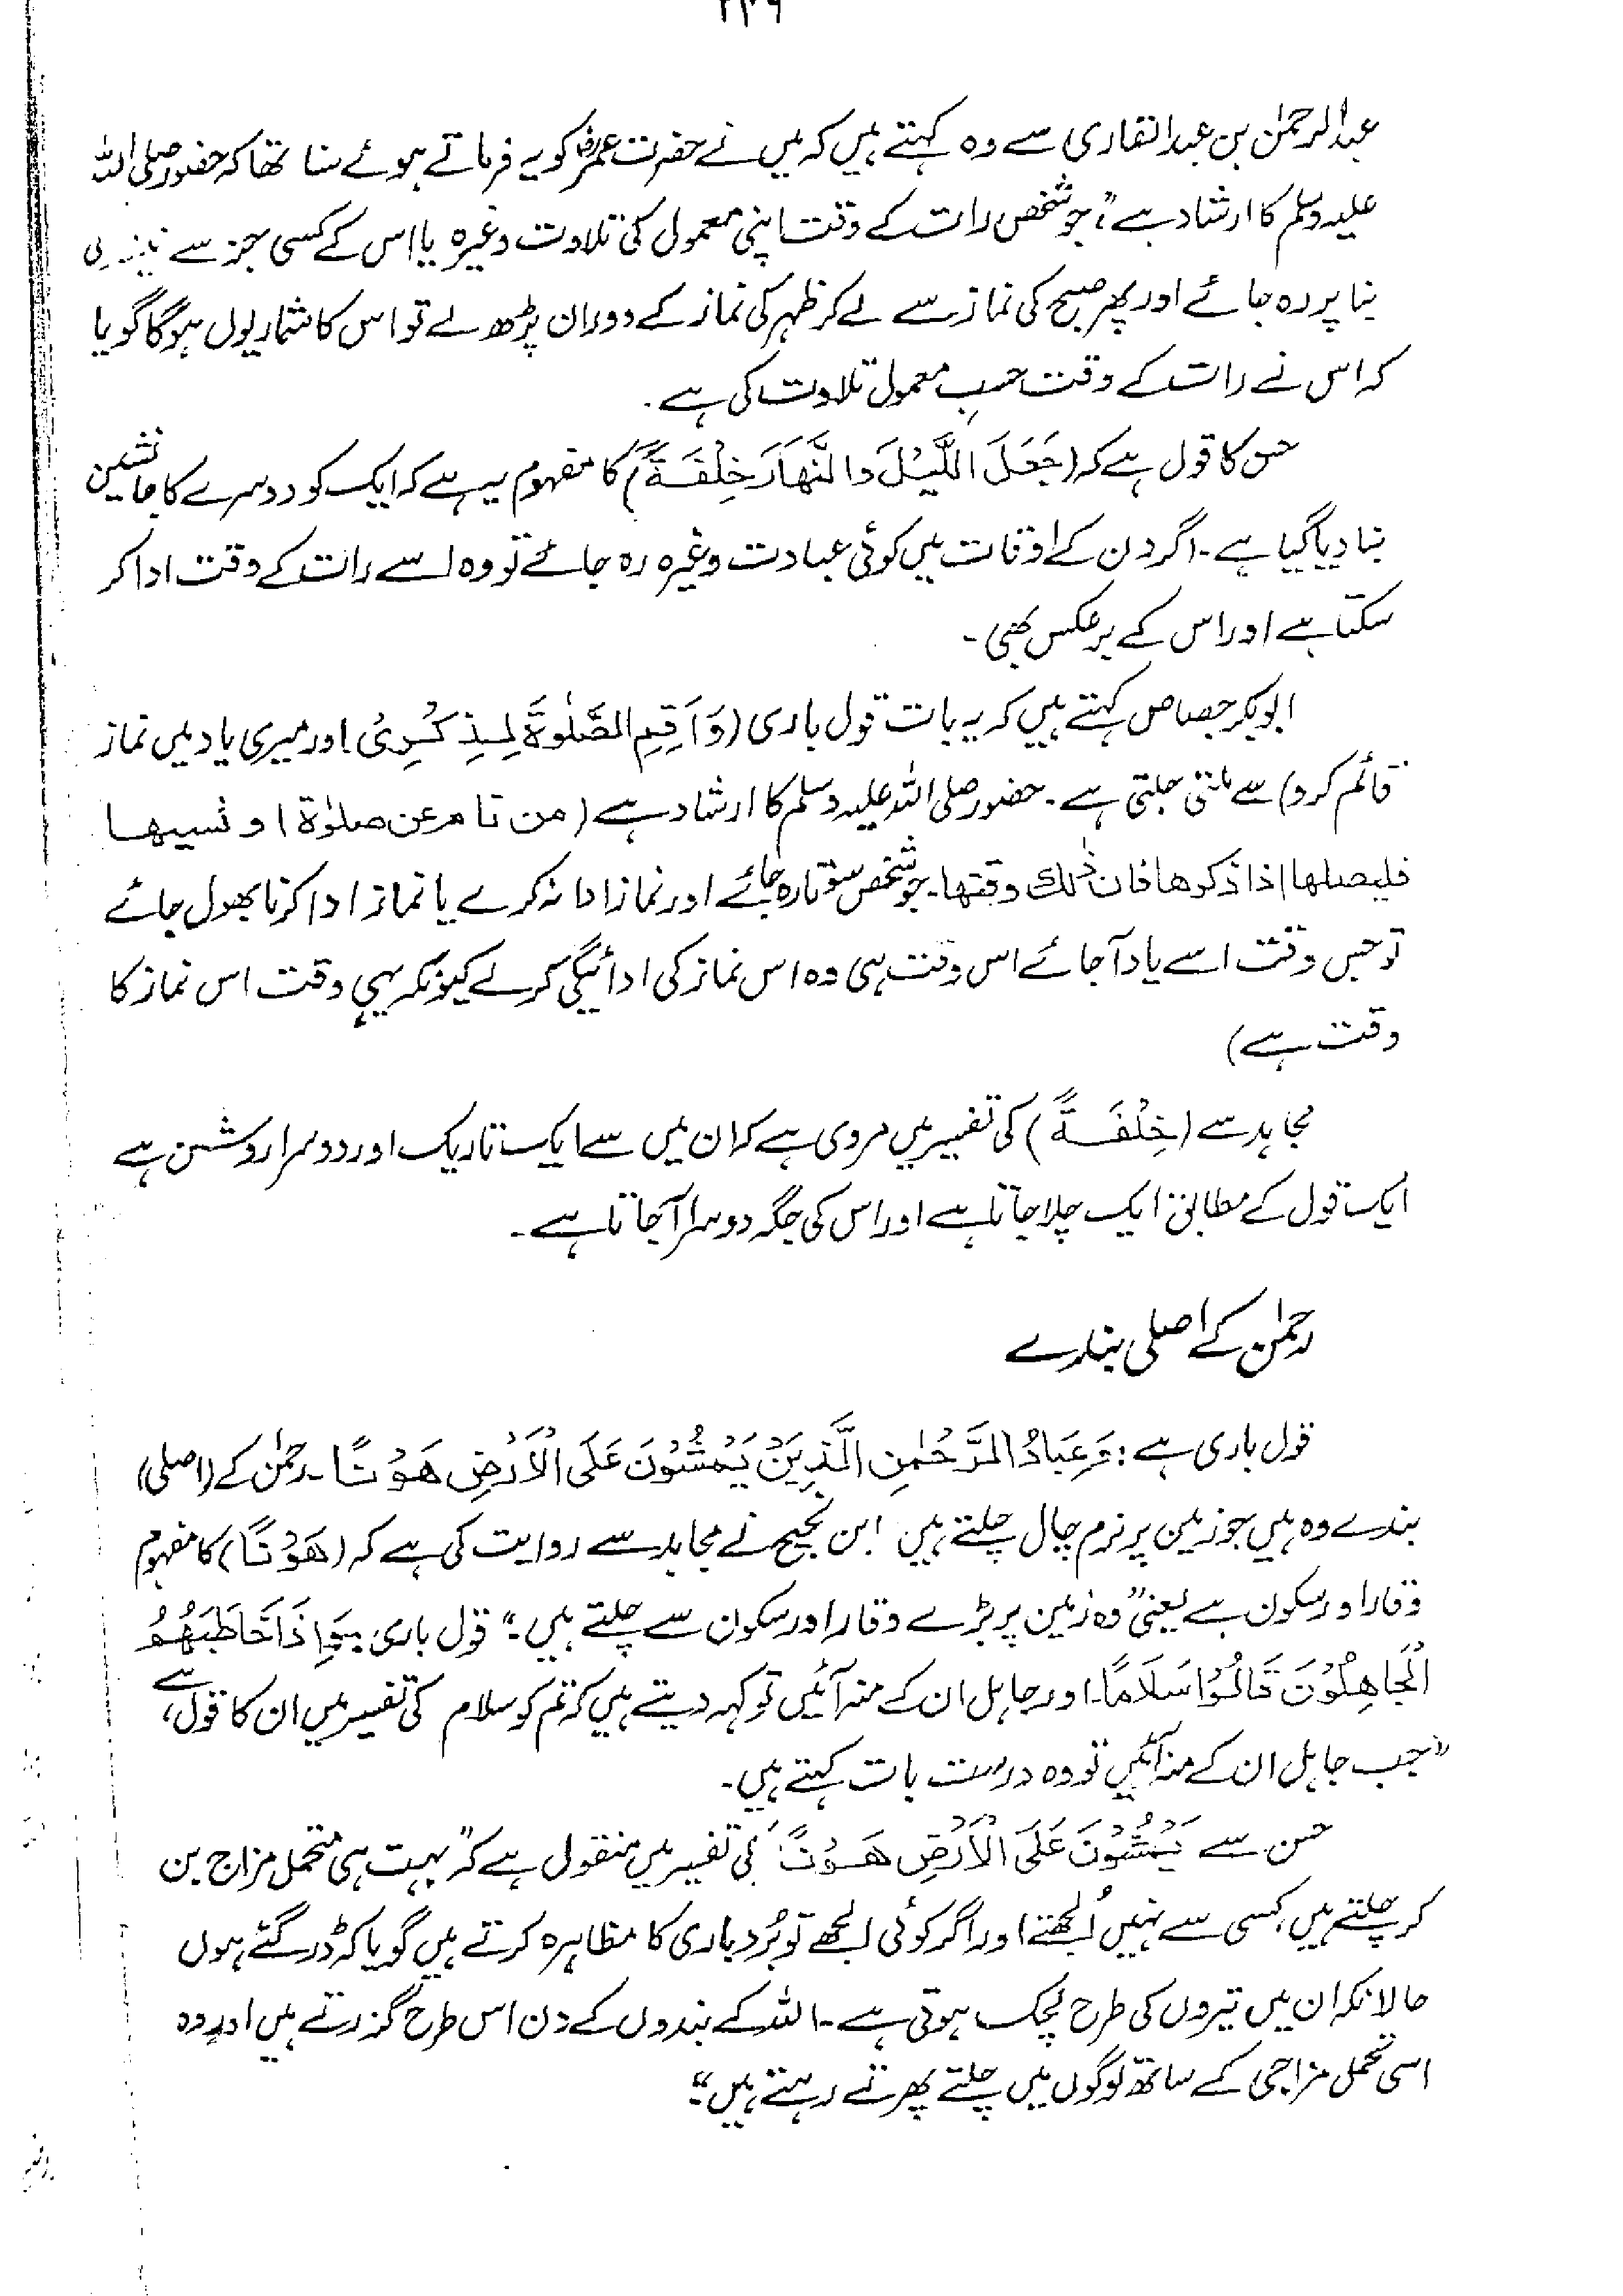 عبدالرحمٰن بن عبدالقاری سے وہ کہتے ہیں کہ میں نے حضرت عمرؓ کو یہ فرماتے ہوئے سنا تھا کہ حضور صلی اللہ
علیہ وسلم کا ارشاد ہے "جو شخص رات کے وقت اپنی معمول کی تلاوت وغیرہ یا اس کے کسی جز سے نیند کی
بنا پر رہ جائے اور پھر صبح کی نماز سے لے کر ظہر کی نماز کے دوران پڑھ لے تو اس کا شمار یوں ہوگا گویا
کہ اس نے رات کے وقت حسبِ معمول تلاوت کی ہے۔
حسن کا قول ہے کہ (جَعَلَ اللَّيْلَ وَالنَّهَارَ خِلْفَةً) کا مفہوم یہ ہے کہ ایک کو دوسرے کا جانشین
بنا دیا گیا ہے۔ اگر دن کے اوقات میں کوئی عبادت وغیرہ رہ جائے تو وہ اسے رات کے وقت ادا کر
سکتا ہے اور اس کے برعکس بھی۔
ابوبکر جصاص کہتے ہیں کہ یہ بات قول باری (وَأَقِمِ الصَّلٰوةَ لِذِكْرِىْ اور میری یاد میں نماز
قائم کرو) سے ملتی جلتی ہے۔ حضور صلی اللہ علیہ وسلم کا ارشاد ہے (من نام عن صلوٰة او نسيها
فليصلها اذا ذكرها فان ذٰلك وقتها۔ جو شخص سوتا رہ جائے اور نماز ادا نہ کرے یا نماز ادا کرنا بھول جائے
تو جس وقت اسے یاد آجائے اس وقت ہی وہ اس نماز کی ادائیگی کرلے کیونکہ یہی وقت اس نماز کا
وقت ہے)
مجاہد سے (خِلْفَةً) کی تفسیر میں مروی ہے کہ ان میں سے ایک تاریک اور دوسرا روشن ہے
ایک قول کے مطابق ایک چلا جاتا ہے اور اس کی جگہ دوسرا آجاتا ہے۔
رحمٰن کے اصلی بندے
قول باری ہے: وَعِبَادُ الرَّحْمٰنِ الَّذِيْنَ يَمْشُوْنَ عَلَى الْاَرْضِ هَوْنًا۔ رحمٰن کے (اصلی)
بندے وہ ہیں جو زمین پر نرم چال چلتے ہیں ابن نجیح نے مجاہد سے روایت کی ہے کہ (هَوْنًا) کا مفہوم
وقار اور سکون ہے یعنی "وہ زمین پر بڑے وقار اور سکون سے چلتے ہیں"۔ قول باری ہے وَاِذَا خَاطَبَهُمُ
الْجَاهِلُوْنَ قَالُوْا سَلَامًا۔ اور جاہل ان کے منہ آئیں تو کہہ دیتے ہیں کہ تم کو سلام کی تفسیر میں ان کا قول ہے،
"جب جاہل ان کے منہ آئیں تو وہ درست بات کہتے ہیں۔
حسن سے يَمْشُوْنَ عَلَى الْاَرْضِ هَوْنًا کی تفسیر میں منقول ہے کہ "بہت ہی متحمل مزاج بن
کر چلتے ہیں، کسی سے نہیں اُلجھتے اور اگر کوئی الجھے تو بُردباری کا مظاہرہ کرتے ہیں گویا کہ ڈر گئے ہوں
حالانکہ ان میں تیروں کی طرح لچک ہوتی ہے۔ اللہ کے بندوں کے دن اس طرح گزرتے ہیں اور وہ
اسی تحمل مزاجی کے ساتھ لوگوں میں چلتے پھرتے رہتے ہیں"۔